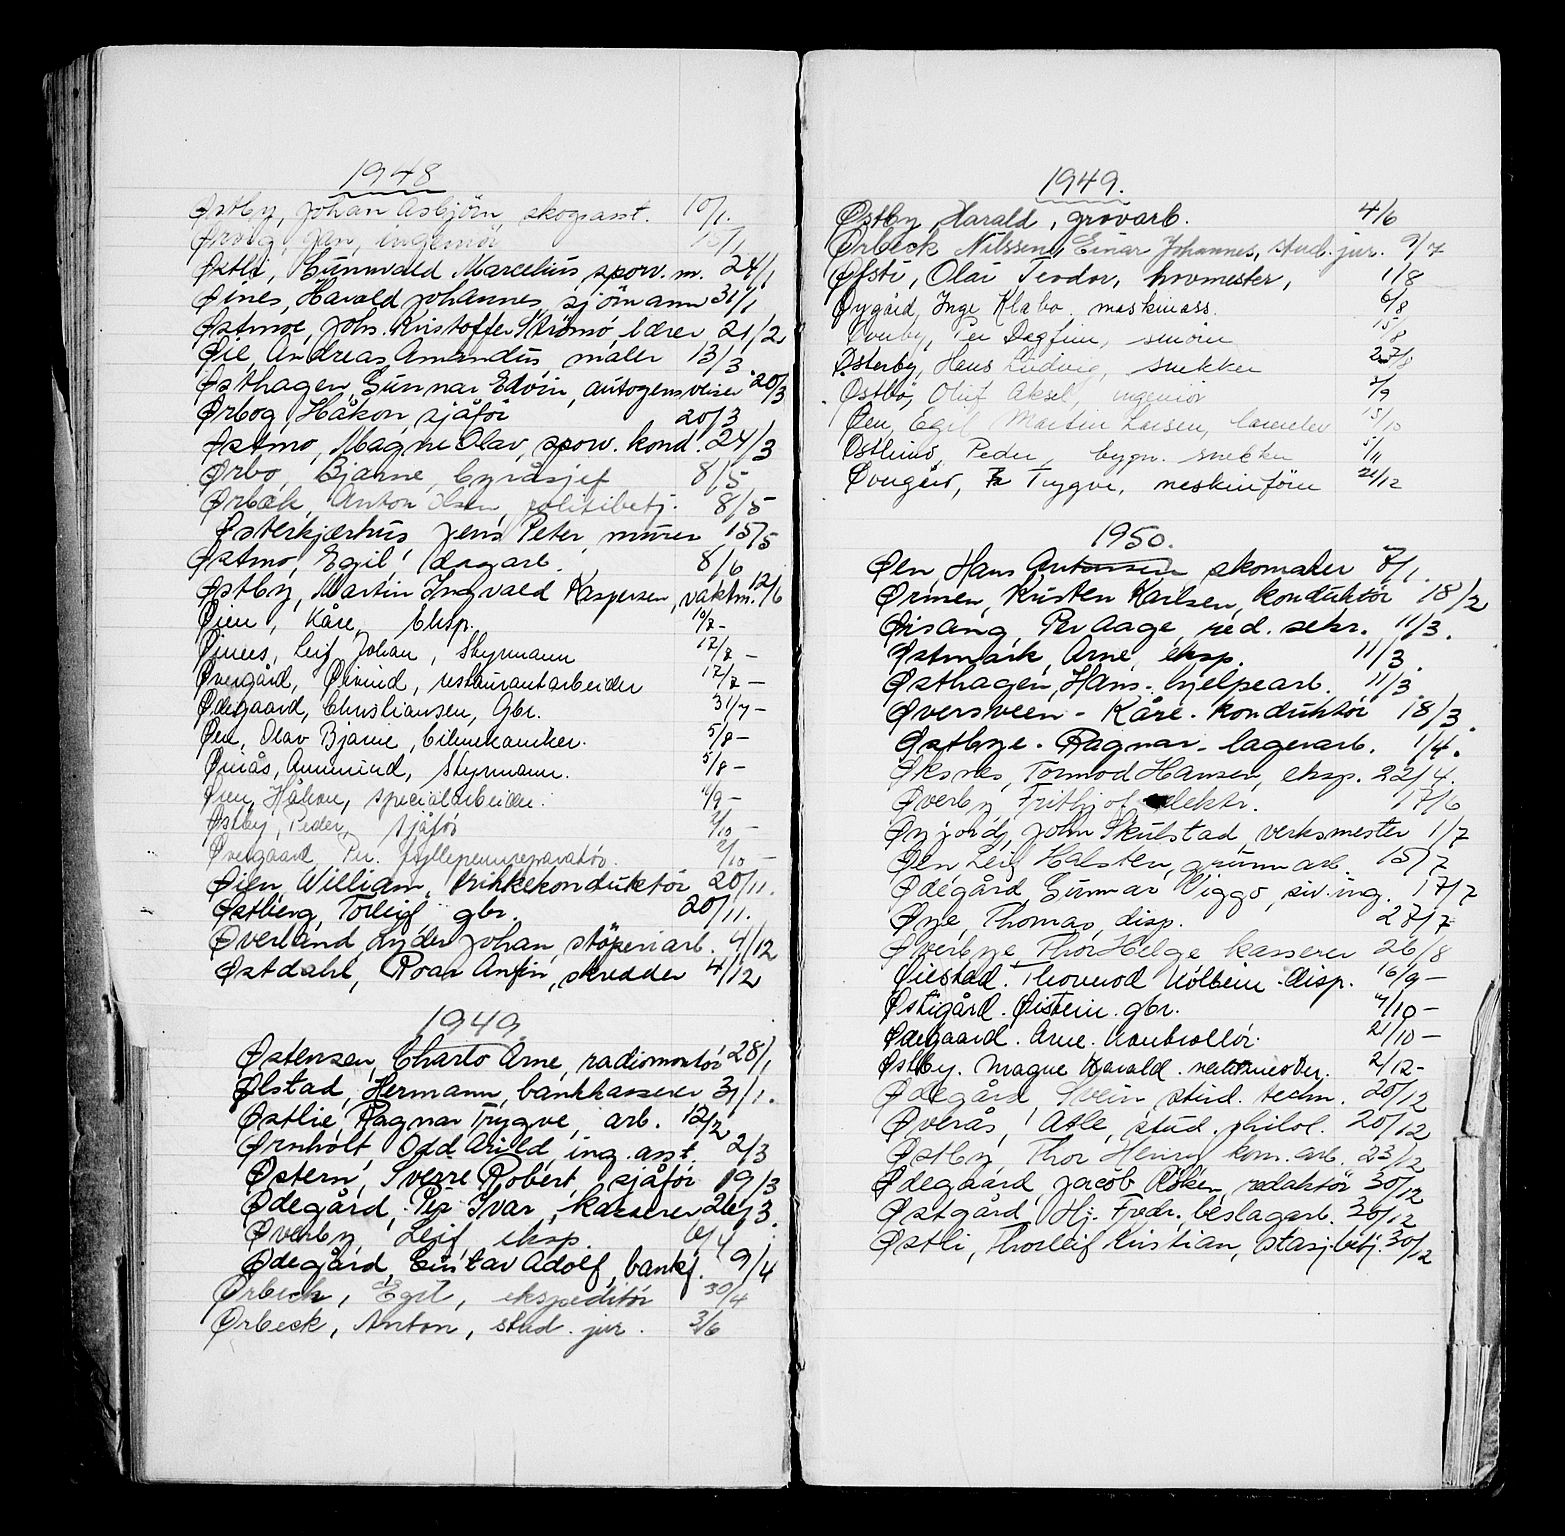 1948
Østby, Johan Asbjørn skogsasst. 10/1.
Ørvig, Jan, ingeniør 10/1
Østli, Gunnvald Marcelius, sporv. m. 24/1
Øines, Harald Johannes, sjömann 31/1
Østmoe, Johs. Kristoffer Strömsö, lærer 21/2
Øie, Andreas Amandus maler 13/3
Østhagen, Gunnar Edvin, autogensveiser 20/3
Ørbog, Håkon, sjåfør 20/3
Østmo, Magne Olav, sporv. kond. 24/3
Ørbo, Bjarne, byråsjef 8/5
Ørbæk, Anton Olsen, politibetj. 8/5
Østerkjærhus Jens Peter, murer 15/5
Østmo, Egil, dagarb. 8/6
Østby, Martin Ingvald Kaspersen, vaktm. 12/6
Øien, Kåre, Eksp. 10/7-
Øinees, Leif Johan, Styrmann 17/7-
Øvergård, Øivind, restaurantarbeider 17/7-
Ødegaard, Christiansen, Gbr. 31/7-
Øen, Olav Bjarne, bilmekaniker. 5/8-
Ømås, Ammund, Styrmann. 5/8-
Øien, Håkon, specialarbeider. /9-
Østby, Peder, sjåfør 2/10-
Øvergaard, Per. fyllepennreparatør. 2/10-
Øien, William, trikkekonduktør 20/11.
Østberg, Torleif gbr. 20/11.
Øverland, Lyder Johan, støperiarb. 4/12
Østdahl, Roar Anfin, skredder 4/12
1949
Østensen, Charlo Arne, radiomontör 28/1
Ølstad, Hermann, bankkasserer 31/1.
Østlie, Ragnar Trygve, arb. 12/2
Ørnholt Odd Arild, ing. asst. 2/3
Østern, Sverre Robert, sjåfør 19/3
Ødegård, Per Ivar, kasserer 26/3
Øverby, Leif eksp. 6/4
Ødegård, Gustav Adolf, bankf. 9/4
Ørbech, Egil, ekspeditør 30/4
Ørbeck, Anton, stud. jur. 3/6
1949.
Østby, Harald, grovarb. 4/6
Ørbeck Nilssen, Einar Johannes, stud. jur. 9/7
Øfsti, Olav Teodor, hovmester, 1/8
Øygård, Inge Klabo. maskinass. 6/8
Øverby, Per Dagfinn, 15/8
Østerby, Hans Ludvig, snekker 27/8
Østbø, Oluf Aksel, ingeniør 2/9
Øen, Egil Martin Larsen, lærerelev 15/10
Østlimo, Peder, bygn. snekker 5/11
Øvergård, Trygve, maskinfører 21/12
1950.
Øen, Hans Antonsen skomaker 7/1.
Ørmen, Kristen Karlsen, konduktør 18/2
Øisang, Per Aage, red. sekr. 11/3.
Østmark, Arne, eksp. 11/3.
Østhagen, Hans. hjelpearb. 11/3.
Øversveen - Kåre. konduktör 18/3.
Østbye. Ragnar. lagerarb. 1/4.
Øksnes, Tormod Hansen, eksp. 22/4.
Øverby Frithjof elektr. 17/6
Øyjordj, John Skulstad, verksmester 1/7
Øen Leif Halsten, grunnarb. 15/7
Ødegård, Gunnar Viggo, siv. ing. 17/7
Øye, Thomas, disp. 27/7
Øverbye, Thor Helge kasserer 26/8
Øiestad. Thormod Holbein. disp. 16/9-
Østigård. Øistein. gbr. 4/10-
Ødegaard. Arne. Kontrollør. 21/10-
Østby. Magne Harald. 2/12-
Ødegård Svein, stud. techn. 20/12
Øverås, Atle, stud. philol. 20/12
Østby Thor Henry kom. arb. 23/12
Ødegaard, Jacob Röken, redaktör 30/12
Østgård, Hj. Fredr., beslagarb. 30/12
Østli, Thorleif Kristian, stasj.betj. 30/12